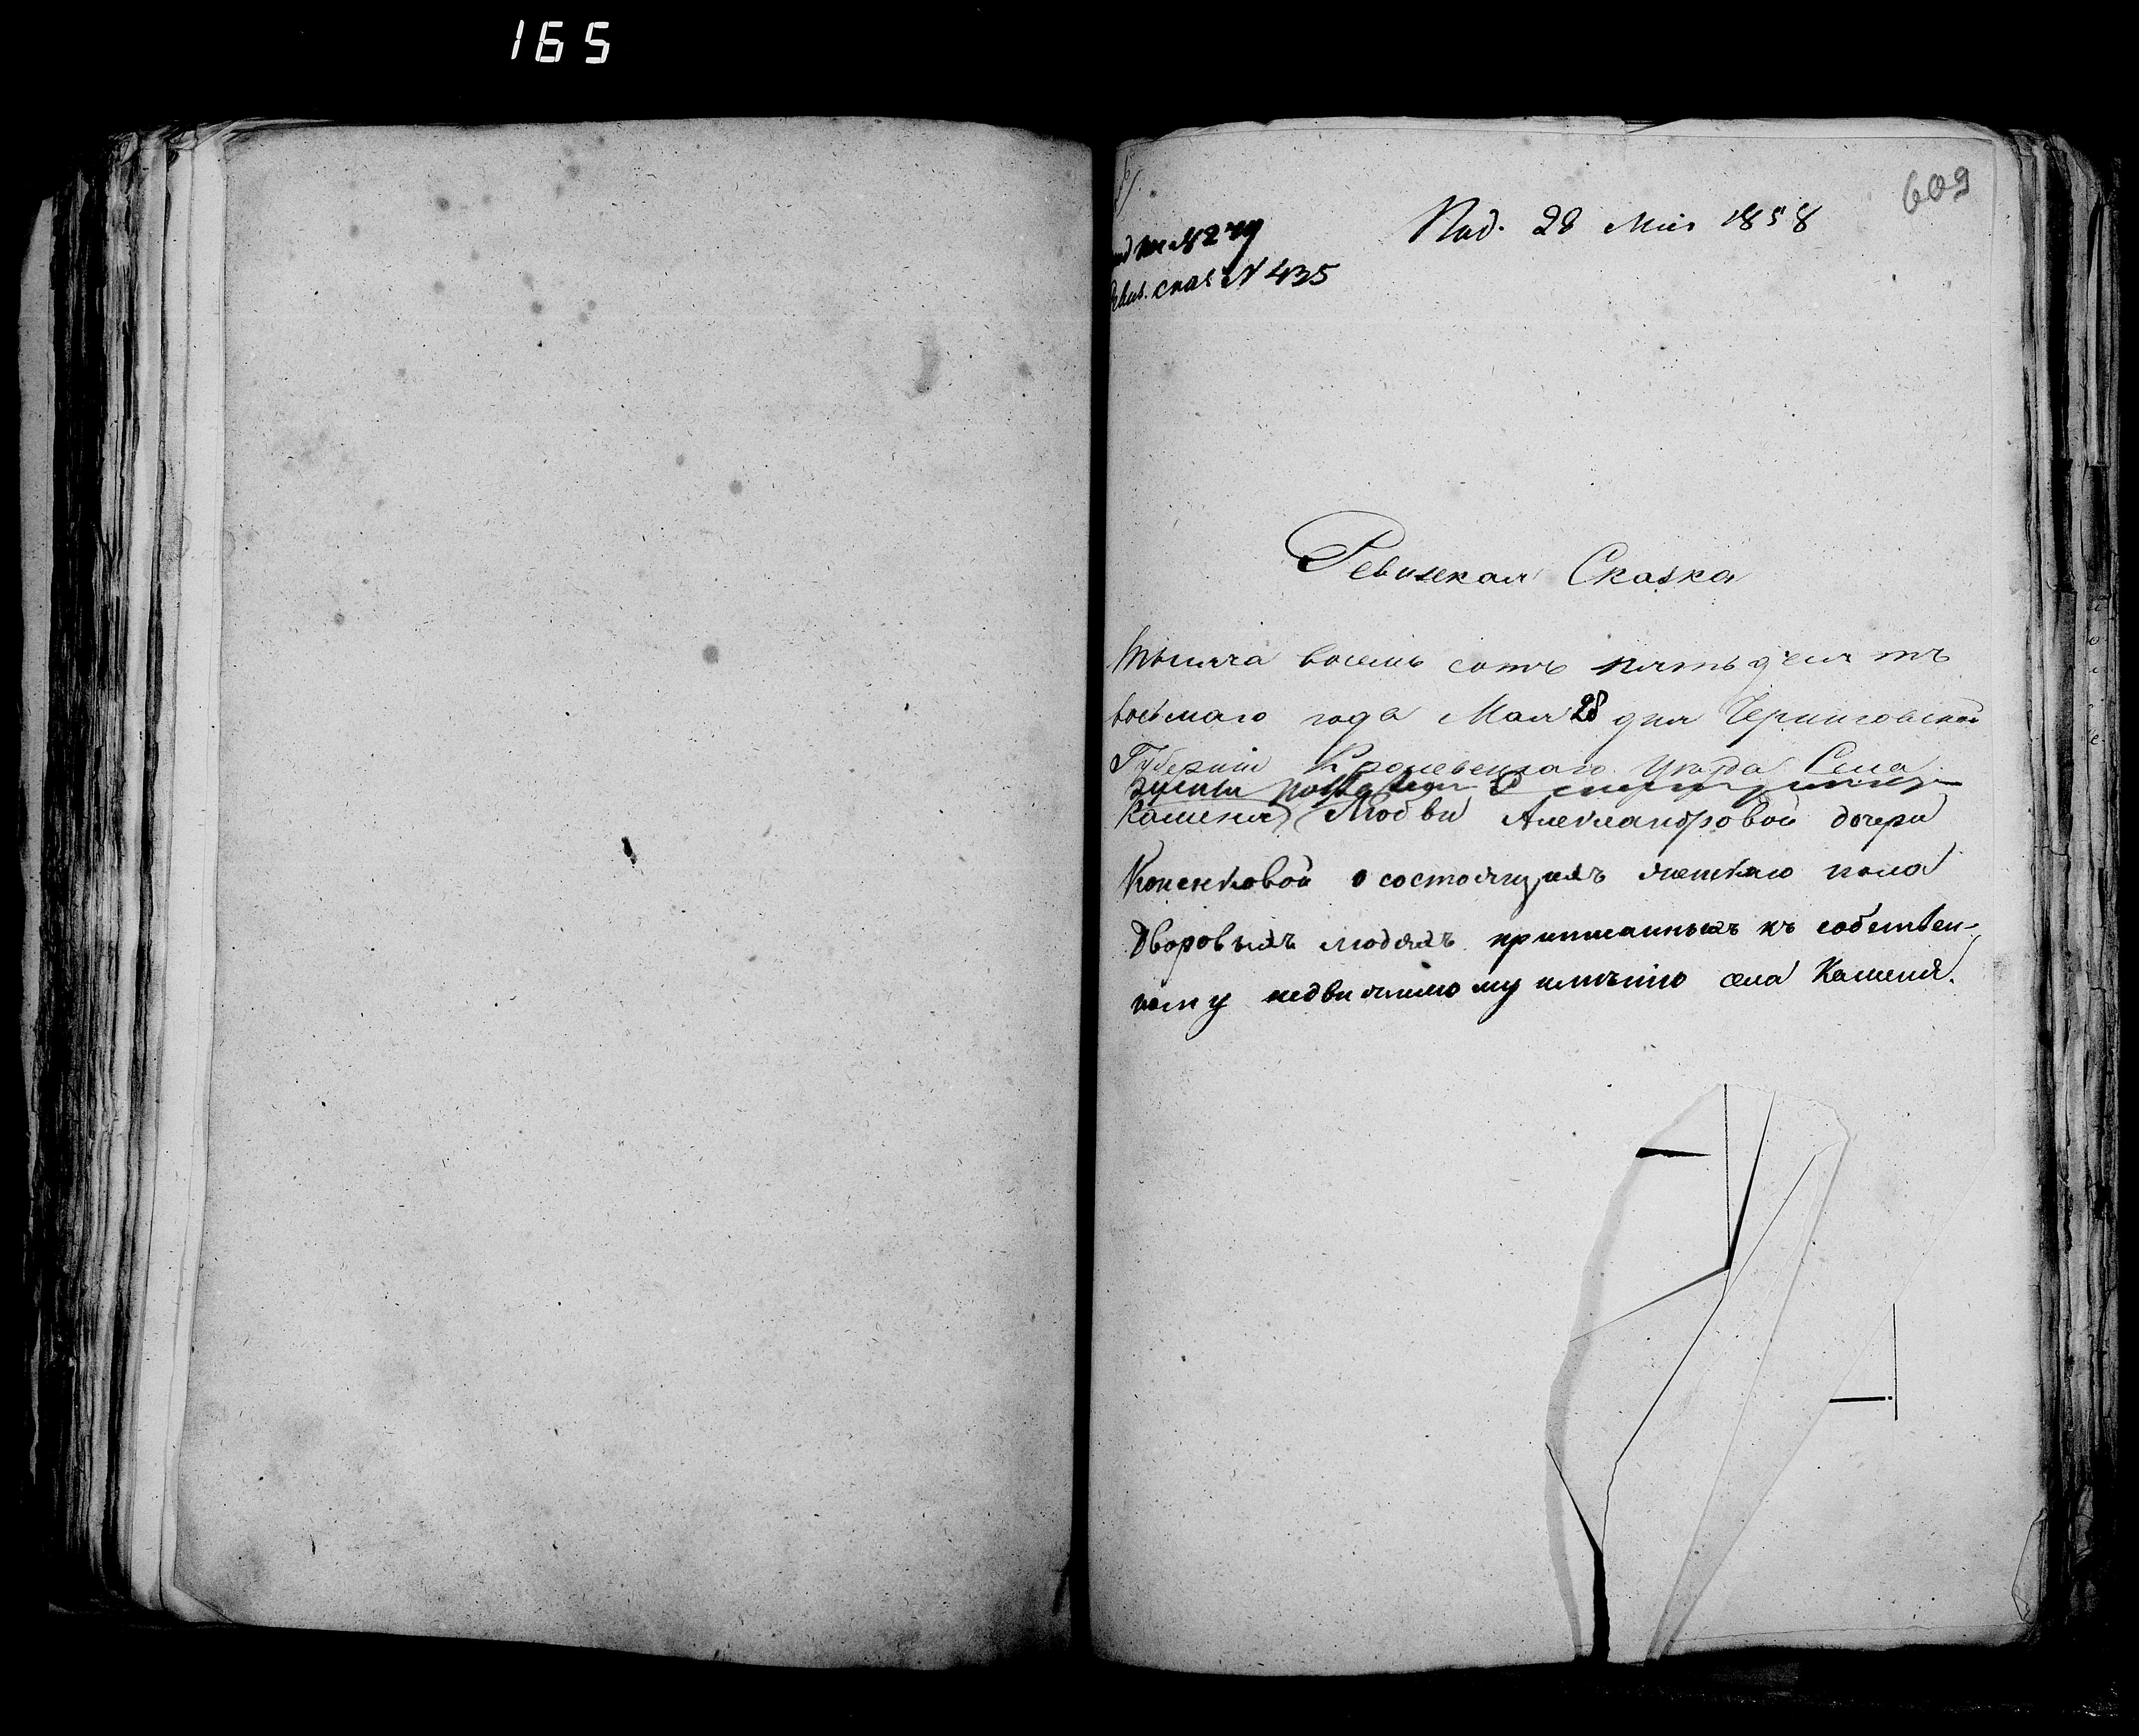 165
609
Под. 28 Мая 1858
Ревиз. сказ. N 435
Ревизская Сказка
Тысяча восемь сотъ пятьдесятъ
восьмаго года Мая 28 дня Черниговской
Губерніи Кролевецкаго Уѣзда Села
Каменя Любви Александровой дочери
о состоящихъ женскаго пола
Дворовыхъ людяхъ приписанныхъ къ собствен-
ному недвижимому имѣнію села Каменя.